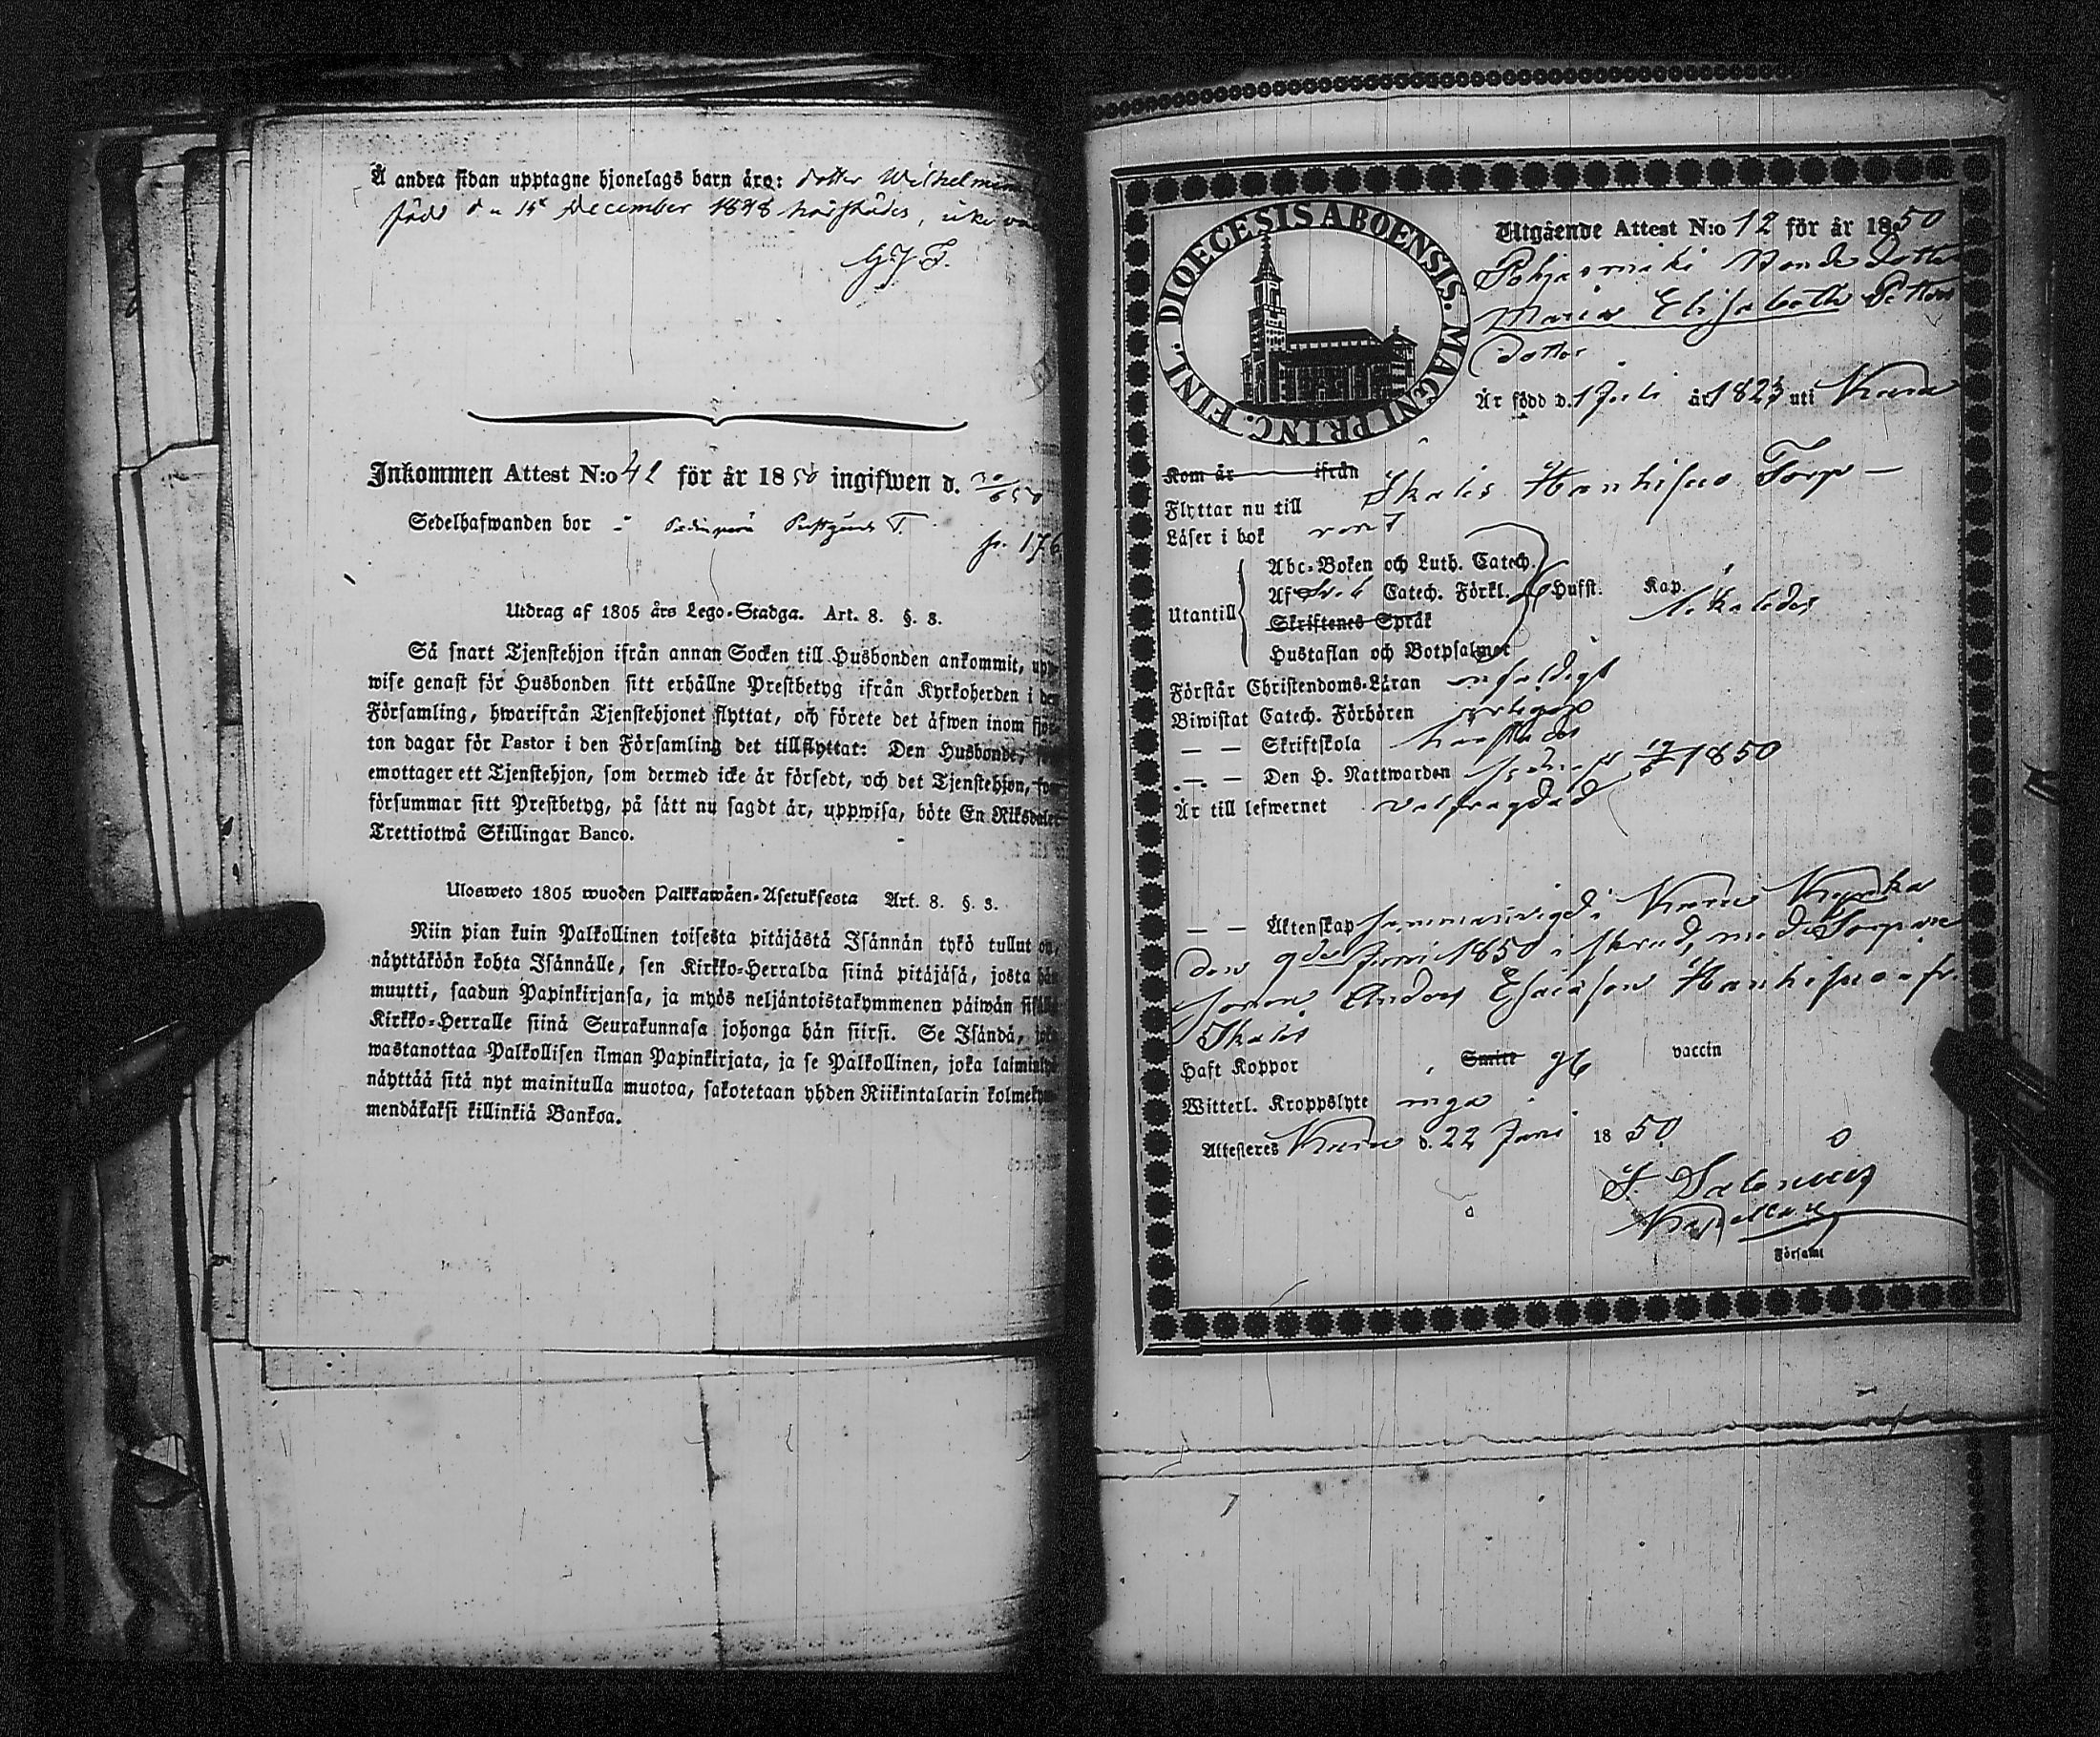 Å andra sidan upptagne hjonelags barn äro: dotter Wilhelmina
född d. 15 December 1848 härstädes, icke
G J F.
Inkommen Attest N:o 42 för år 1850 ingifwen d. 30/6 50
Sedelhafwanden bor
p. 176
Utdrag af 1805 års Lego-Stadga. Art. 8. §. 8.
Så snart Tjenstehjon ifrån annan Socken till Husbonden ankommit, upp-
wise genast för Husbonden sitt erhållne Prestbetyg ifrån Kyrkoherden i den
Församling, hwarifrån Tjenstehjonet flyttat, och förete det äfwen inom fjor-
ton dagar för Pastor i den Församling det tillflyttat: Den Husbonde,
emottager ett Tjenstehjon, som dermed icke är försedt, och det Tjenstehjon, som
försummar sitt Prestbetyg, på sätt nu sagdt är, uppwisa, böte En Riksdaler
Trettiotwå Skillingar Banco.
Ulosweto 1805 wuoden Palkkawäen-Asetuksesta Art. 8. §. 8.
Niin pian kuin Palkollinen toisesta pitäjästä Isännän tykö tullut on,
näyttäköön kohta Isännälle, sen Kirkko-Herralda siinä pitäjäsä, josta hän
muutti, saadun Papinkirjansa, ja myös neljäntoistakymmenen päiwän sisällä
Kirkko-Herralle siinä Seurakunnasa johonga hän siirsi. Se Isändä, joka
wastanottaa Palkollisen ilman Papinkirjata, ja se Palkollinen, joka laiminlyö
näyttää sitä nyt mainitulla muotoa, sakotetaan yhden Riikintalarin kolmekym-
mendäkaksi killinkiä Bankoa.
DIOECESIS ABOENSIS. MAGNI PRINC. FINL.
Utgående Attest N:o 12 för år 1850
Pohjasmäki Bonde dotter
Maria Elisabeth Petters
dotter
Är född d. 1 Juli år 1823 uti Karu
Kom år ifrån
Flyttar nu till Ikalis Hanhisuo Torp
Läser i bok rent
Utantill
Abc-Boken och Luth. Catech.
Af Catech. Förkl. Hufst. Kap.
Skriftenes Språk
Hustaflan och Botpsalmer
Förstår Christendoms-Läran enfaldigt
Biwistat Catech. Förhören årligen
— — Skriftskola härstädes
— — Den H. Nattwarden 1850
Är till lefwernet välfrägdad
— — Äktenskap sammanvigd i Karu Kyrka
den 9de Juni 1850 med Torpare
sonen Anders Esaiasson Hanhisuo fr.
Ikalis
Haft Koppor Smitt vaccin
Witterl. Kroppslyte inga
Attesteras Karu d. 22 Juni 1850
Kapellan
Församl